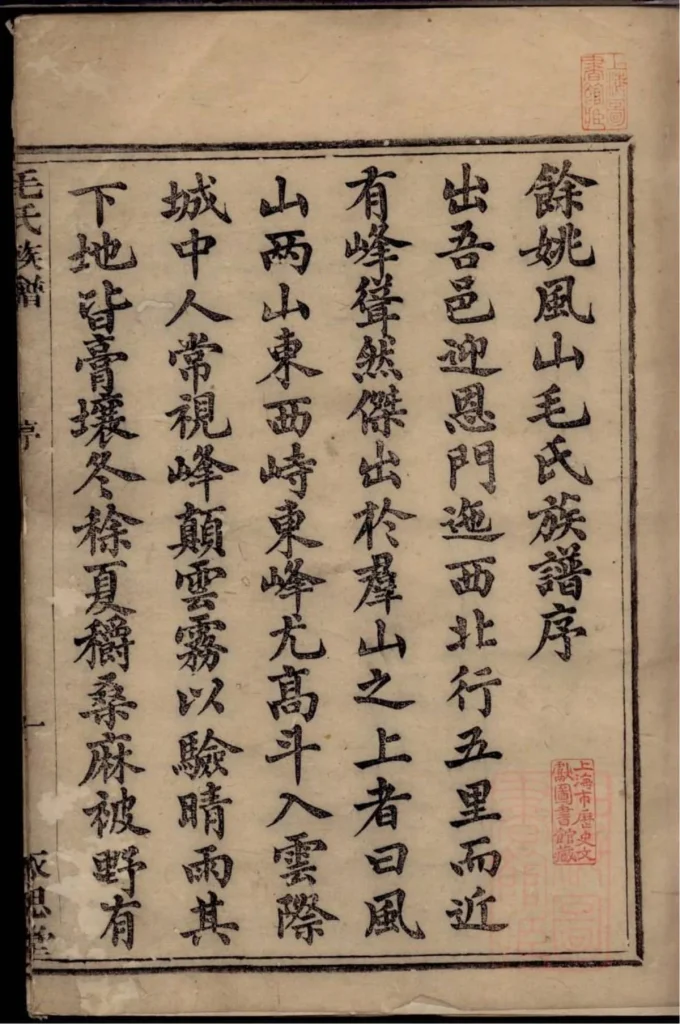 餘姚風山毛氏族譜序
出吾邑迎恩門迤西北行五里而近
有峰聳然傑出於羣山之上者曰風
山兩山東西峙東峰尤高斗入雲際
城中人常視峰顛雲霧以驗晴雨其
下地皆膏壤冬稌夏穱桑麻被野有
毛氏族譜
序
一
永思堂
上海市歷史文
獻圖書館藏